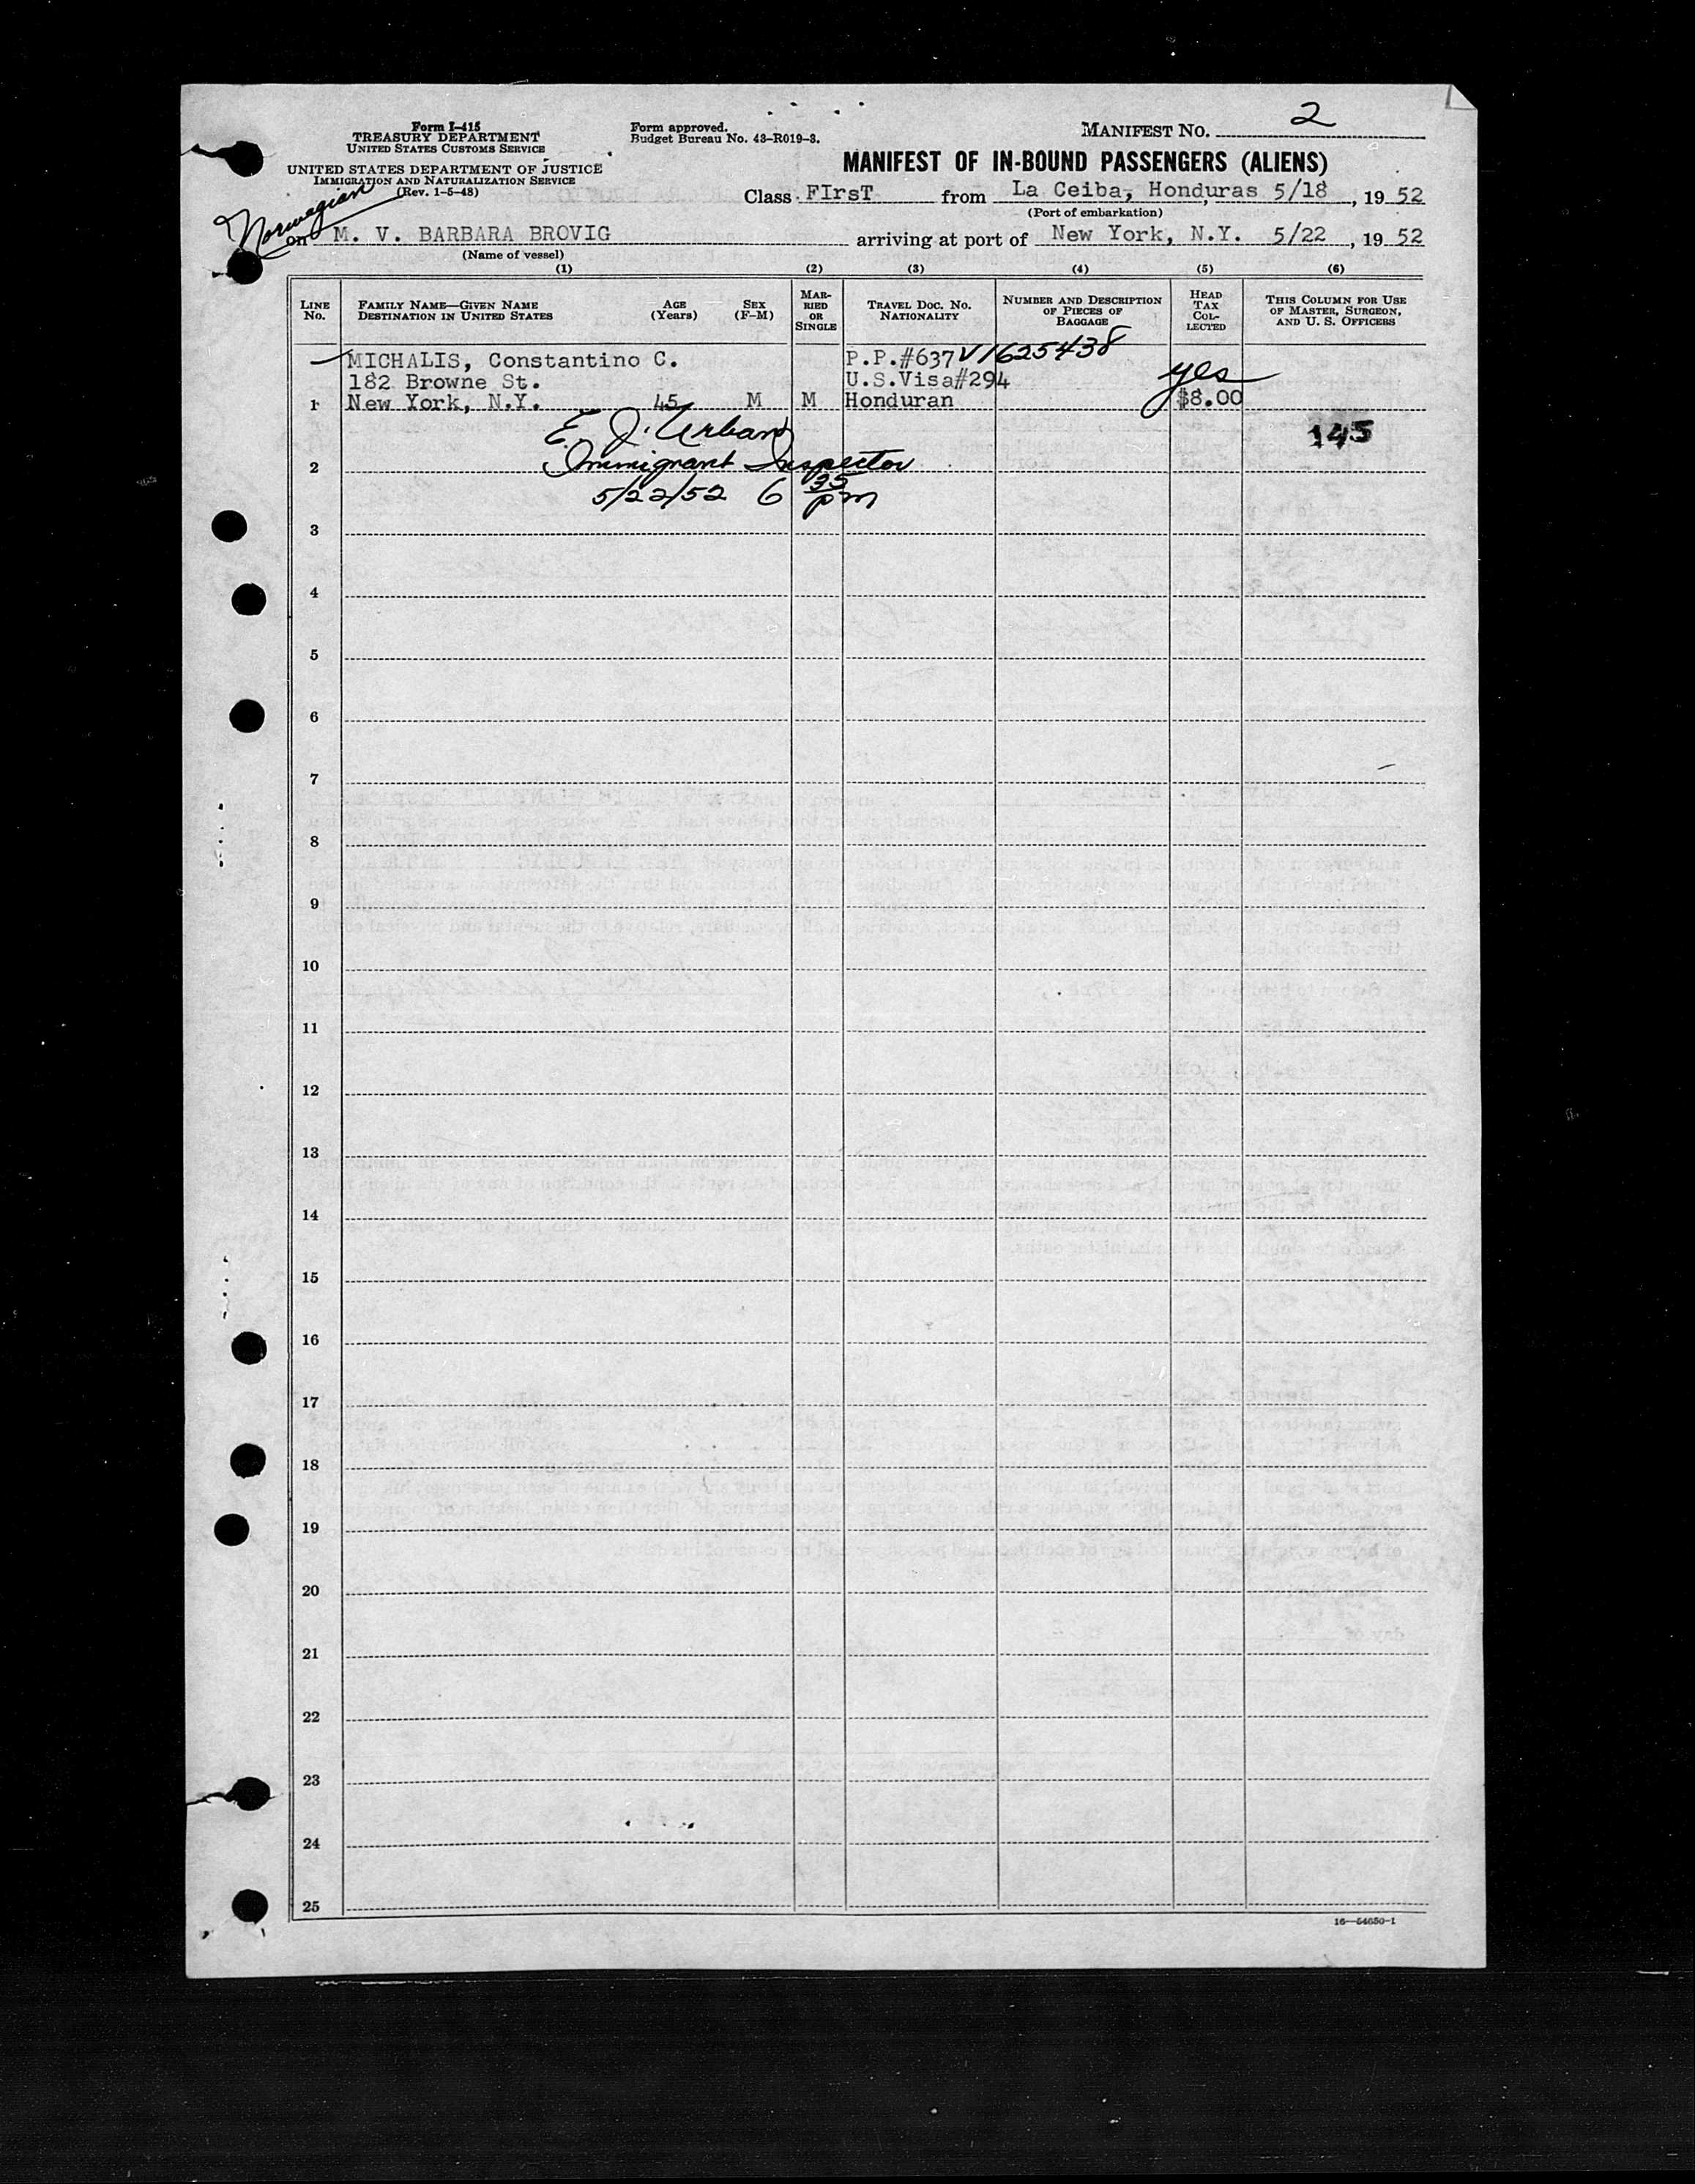 Form I-415
TREASURY DEPARTMENT
UNITED STATES CUSTOMS SERVICE
UNITED STATES DEPARTMENT OF JUSTICE
IMMIGRATION AND NATURALIZATION SERVICE
(Rev. 1-5-48)
Form approved.
Budget Bureau No. 43-R019-3.
MANIFEST NO. 2
MANIFEST OF IN-BOUND PASSENGERS (ALIENS)
Class FIrsT from La Ceiba, Honduras 5/18, 19 52
(Port of embarkation)
Norwegian
on M. V. BARBARA BROVIG arriving at port of New York, N.Y. 5/22, 19 52
(Name of vessel)
(1) (2) (3) (4) (5) (6)
LINE No.
FAMILY NAME—GIVEN NAME
DESTINATION IN UNITED STATES
AGE (Years)
SEX (F-M)
MARRIED OR SINGLE
TRAVEL DOC. NO.
NATIONALITY
NUMBER AND DESCRIPTION OF PIECES OF BAGGAGE
HEAD TAX COLLECTED
THIS COLUMN FOR USE OF MASTER, SURGEON, AND U. S. OFFICERS
MICHALIS, Constantino C. P.P.#637 V1625438
182 Browne St. U.S.Visa#294 yes
1 New York, N.Y. 45 M M Honduran $8.00
E. J. Urban 145
2 Immigrant Inspector
5/22/52 6 35 pm
3
4
5
6
7
8
9
10
11
12
13
14
15
16
17
18
19
20
21
22
23
24
25
16—54650-1